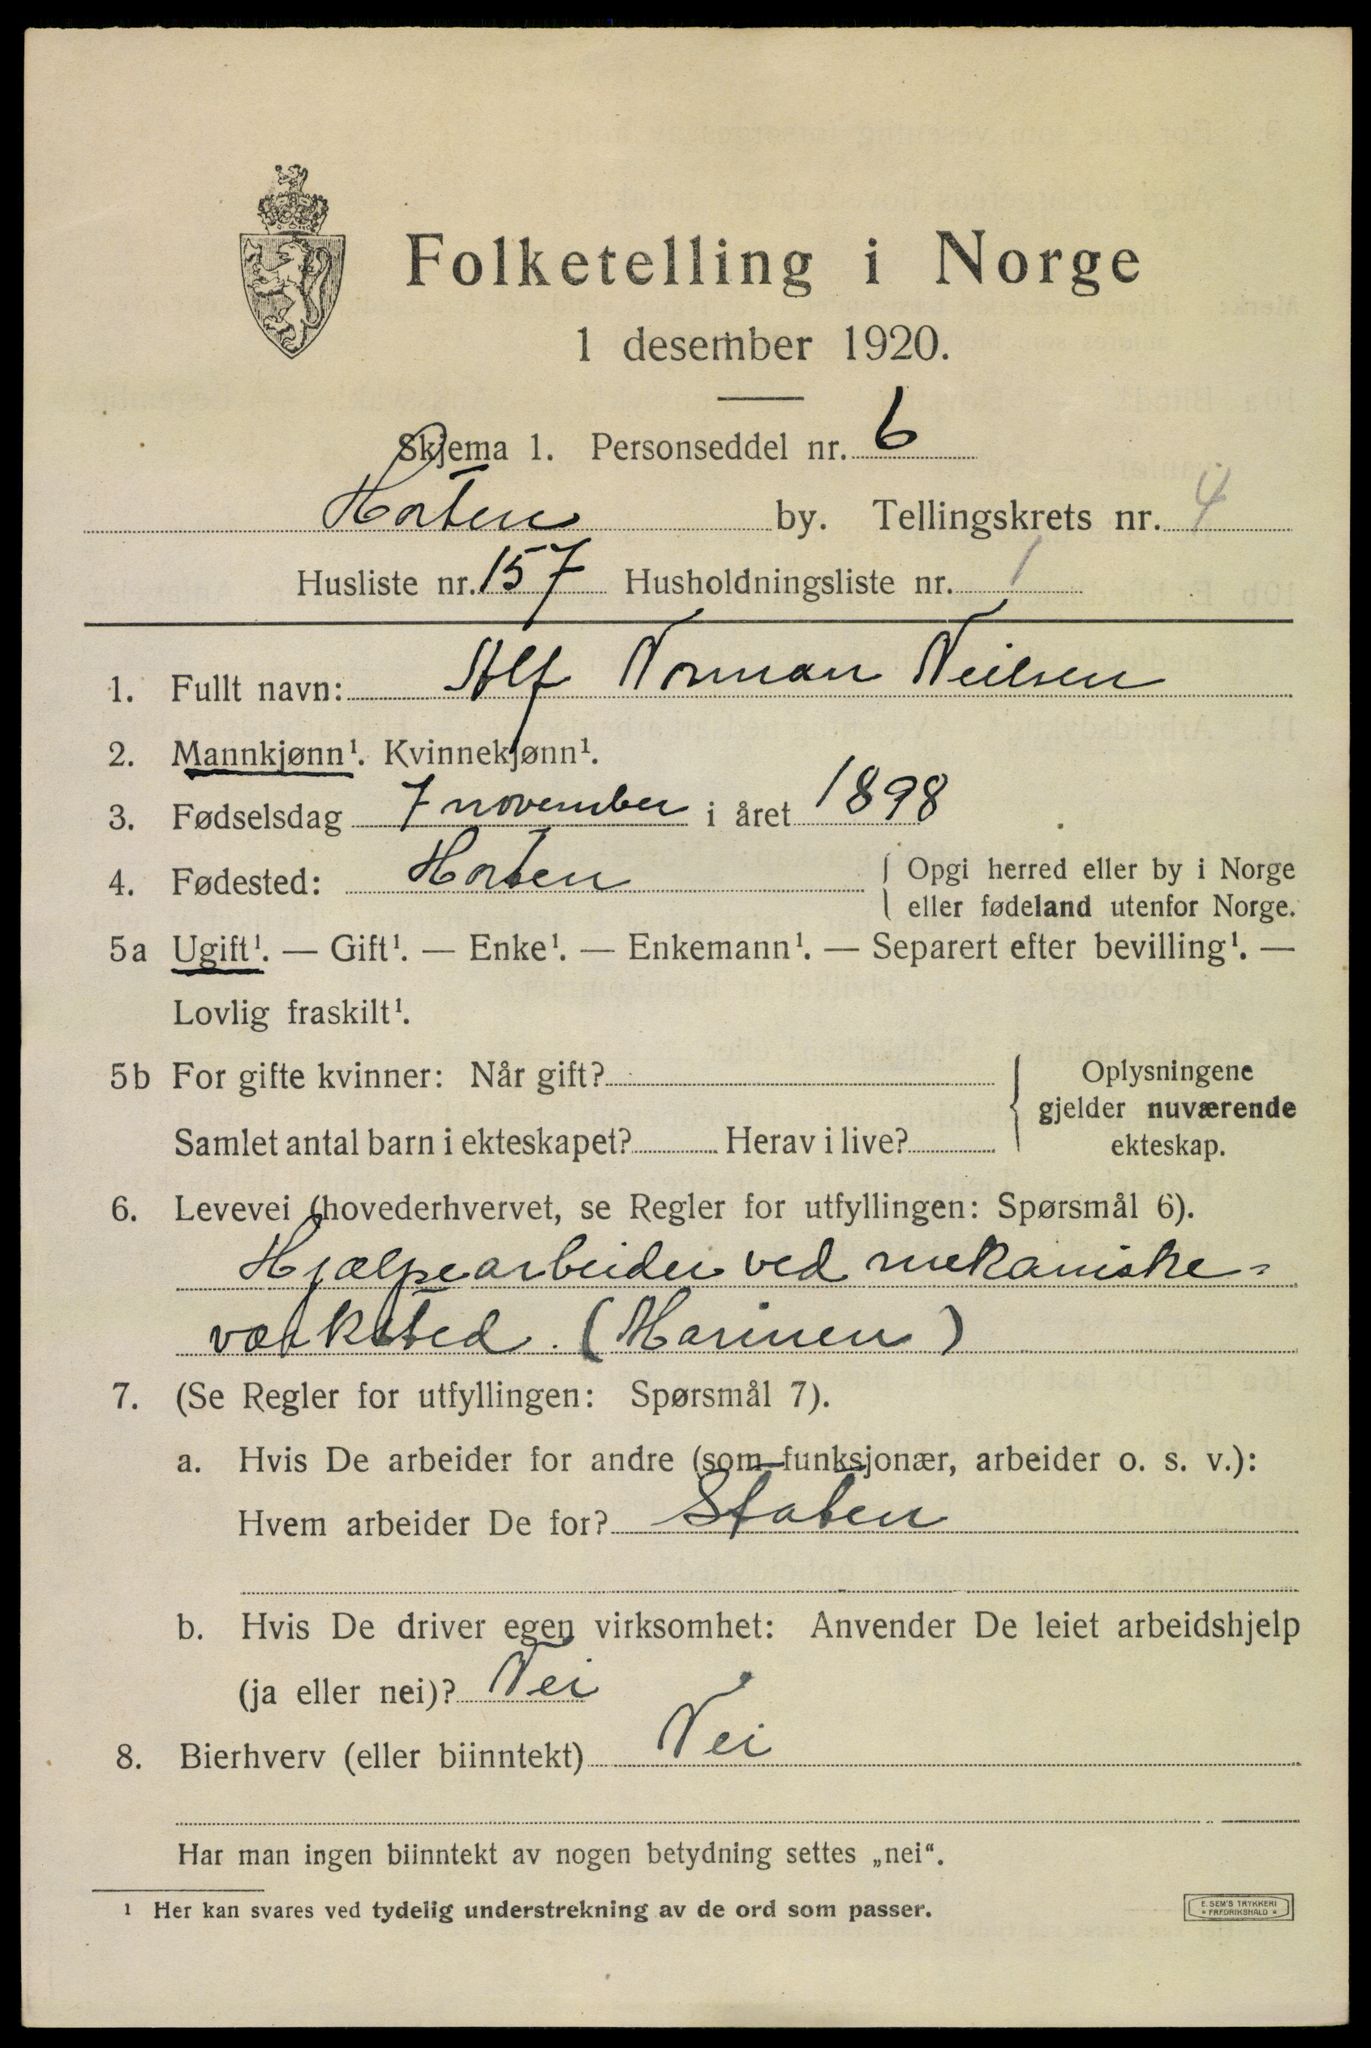 Folketelling i Norge
1 desember 1920.
Skjema 1. Personseddel nr. 6
Horten by. Tellingskrets nr. 4
Husliste nr. 157 Husholdningsliste nr. 1
1. Fullt navn: Alf Norman Neilsen
2. Mannkjønn¹. Kvinnekjønn¹.
3. Fødselsdag 7 november i året 1898
4. Fødested: Horten { Opgi herred eller by i Norge
eller fødeland utenfor Norge.
5a Ugift¹. — Gift¹. — Enke¹. — Enkemann¹. — Separert efter bevilling¹. —
Lovlig fraskilt¹.
5b For gifte kvinner: Når gift? { Oplysningene
gjelder nuværende
Samlet antal barn i ekteskapet? Herav i live? ekteskap.
6. Levevei (hovederhvervet, se Regler for utfyllingen: Spørsmål 6).
Hjælpearbeider ved mekaniske-
værksted. (Marinen)
7. (Se Regler for utfyllingen: Spørsmål 7).
a. Hvis De arbeider for andre (som funksjonær, arbeider o. s. v.):
Hvem arbeider De for? Staten
b. Hvis De driver egen virksomhet: Anvender De leiet arbeidshjelp
(ja eller nei)? Nei
8. Bierhverv (eller biinntekt) Nei
Har man ingen biinntekt av nogen betydning settes „nei“.
¹ Her kan svares ved tydelig understrekning av de ord som passer.
E. SEM'S TRYKKERI
* FREDRIKSHALD *